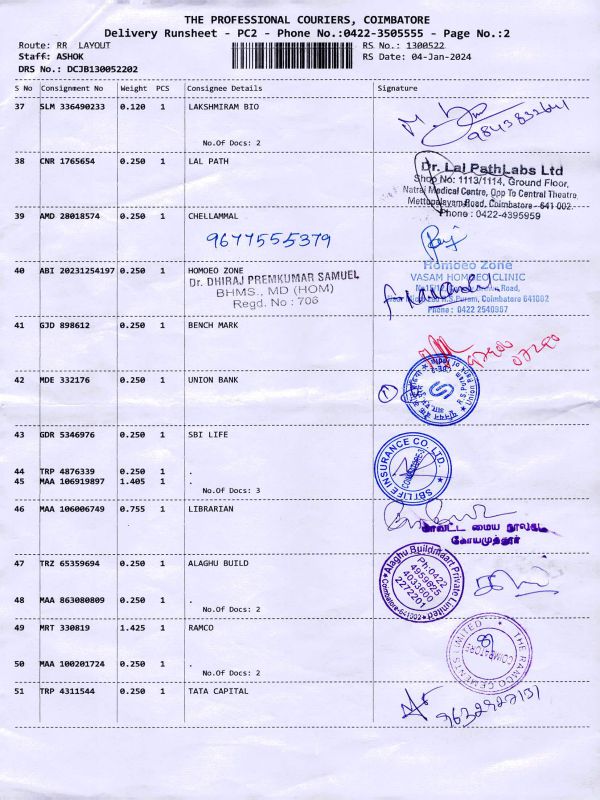 THE PROFESSIONAL COURIERS, COIMBATORE
Delivery Runsheet - PC2 - Phone No.:0422-3505555 - Page No.:2
Route: RR LAYOUT
RS No.: 1300522
Staff: ASHOK
RS Date: 04-Jan-2024
DRS No.: DCJB130052202
S No Consignment No Weight PCS Consignee Details Signature
37 SLM 336490233 0.120 1 LAKSHMIRAM BIO
9843832641
No.Of Docs: 2
38 CNR 1765654 0.250 1 LAL PATH
Dr. Lal PathLabs Ltd
Shop No: 1113/1114, Ground Floor,
Natraj Medical Centre, Opp To Central Theatre,
Mettupalayam Road, Coimbatore - 641 002.
Phone : 0422-4395959
39 AMD 28018574 0.250 1 CHELLAMMAL
9677555379
40 ABI 20231254197 0.250 1 HOMOEO ZONE
Dr. DHIRAJ PREMKUMAR SAMUEL
BHMS., MD (HOM)
Regd. No : 706
Homoeo Zone
VASAM HOMOEO CLINIC
R.S.Puram, Coimbatore 641002
Phone : 0422 2540957
41 GJD 898612 0.250 1 BENCH MARK
42 MDE 332176 0.250 1 UNION BANK
43 GDR 5346976 0.250 1 SBI LIFE
SBI LIFE INSURANCE CO. LTD.
44 TRP 4876339 0.250 1 .
45 MAA 106919897 1.405 1 .
No.Of Docs: 3
46 MAA 106006749 0.755 1 LIBRARIAN
மாவட்ட மைய நூலகம்
கோயமுத்தூர்
47 TRZ 65359694 0.250 1 ALAGHU BUILD
Alaghu Buildmaart Private Limited
Ph:0422
4959625
4033600
2272201
48 MAA 863080809 0.250 1 .
No.Of Docs: 2
49 MRT 330819 1.425 1 RAMCO
THE RAMCO CEMENTS LIMITED
COIMBATORE
50 MAA 100201724 0.250 1 .
No.Of Docs: 2
51 TRP 4311544 0.250 1 TATA CAPITAL